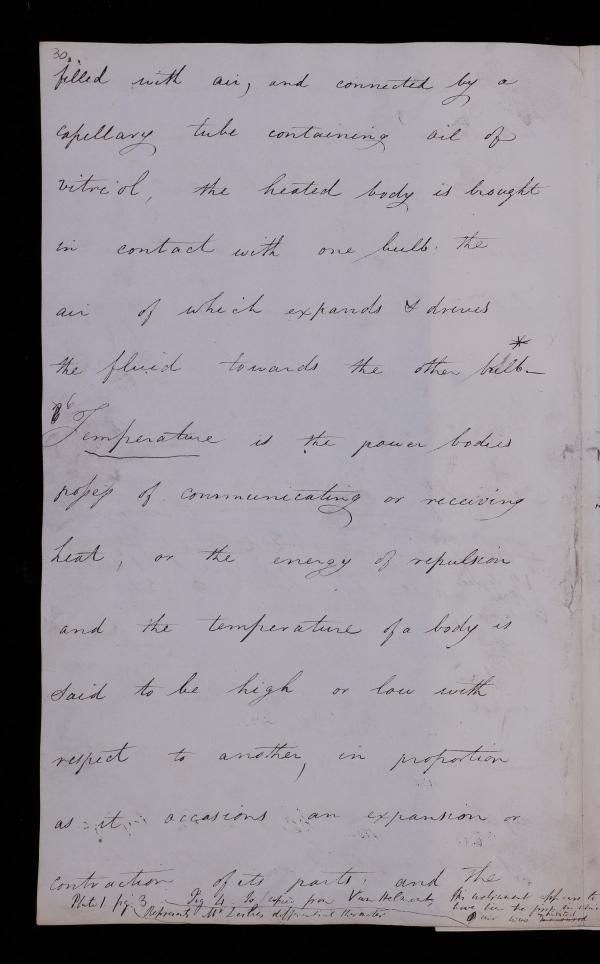 30.
filled with air, and connected by a
capillary tube containing oil of
vitriol, the heated body is brought
in contact with one bulb: the
air of which expands & drives
the fluid towards the other bulb— *
6
Temperature is the power bodies
possess of communicating or receiving
heat, or the energy of repulsion
and the temperature of a body is
said to be high or low with
respect to another, in proportion
as it occasions an expansion or
contraction of its parts: and the
Plate 1 fig. 3. Fig 4. is from Van Helmont
Represents Mr Leslies differential thermometer
this instrument appears to
have been the first in which
air was